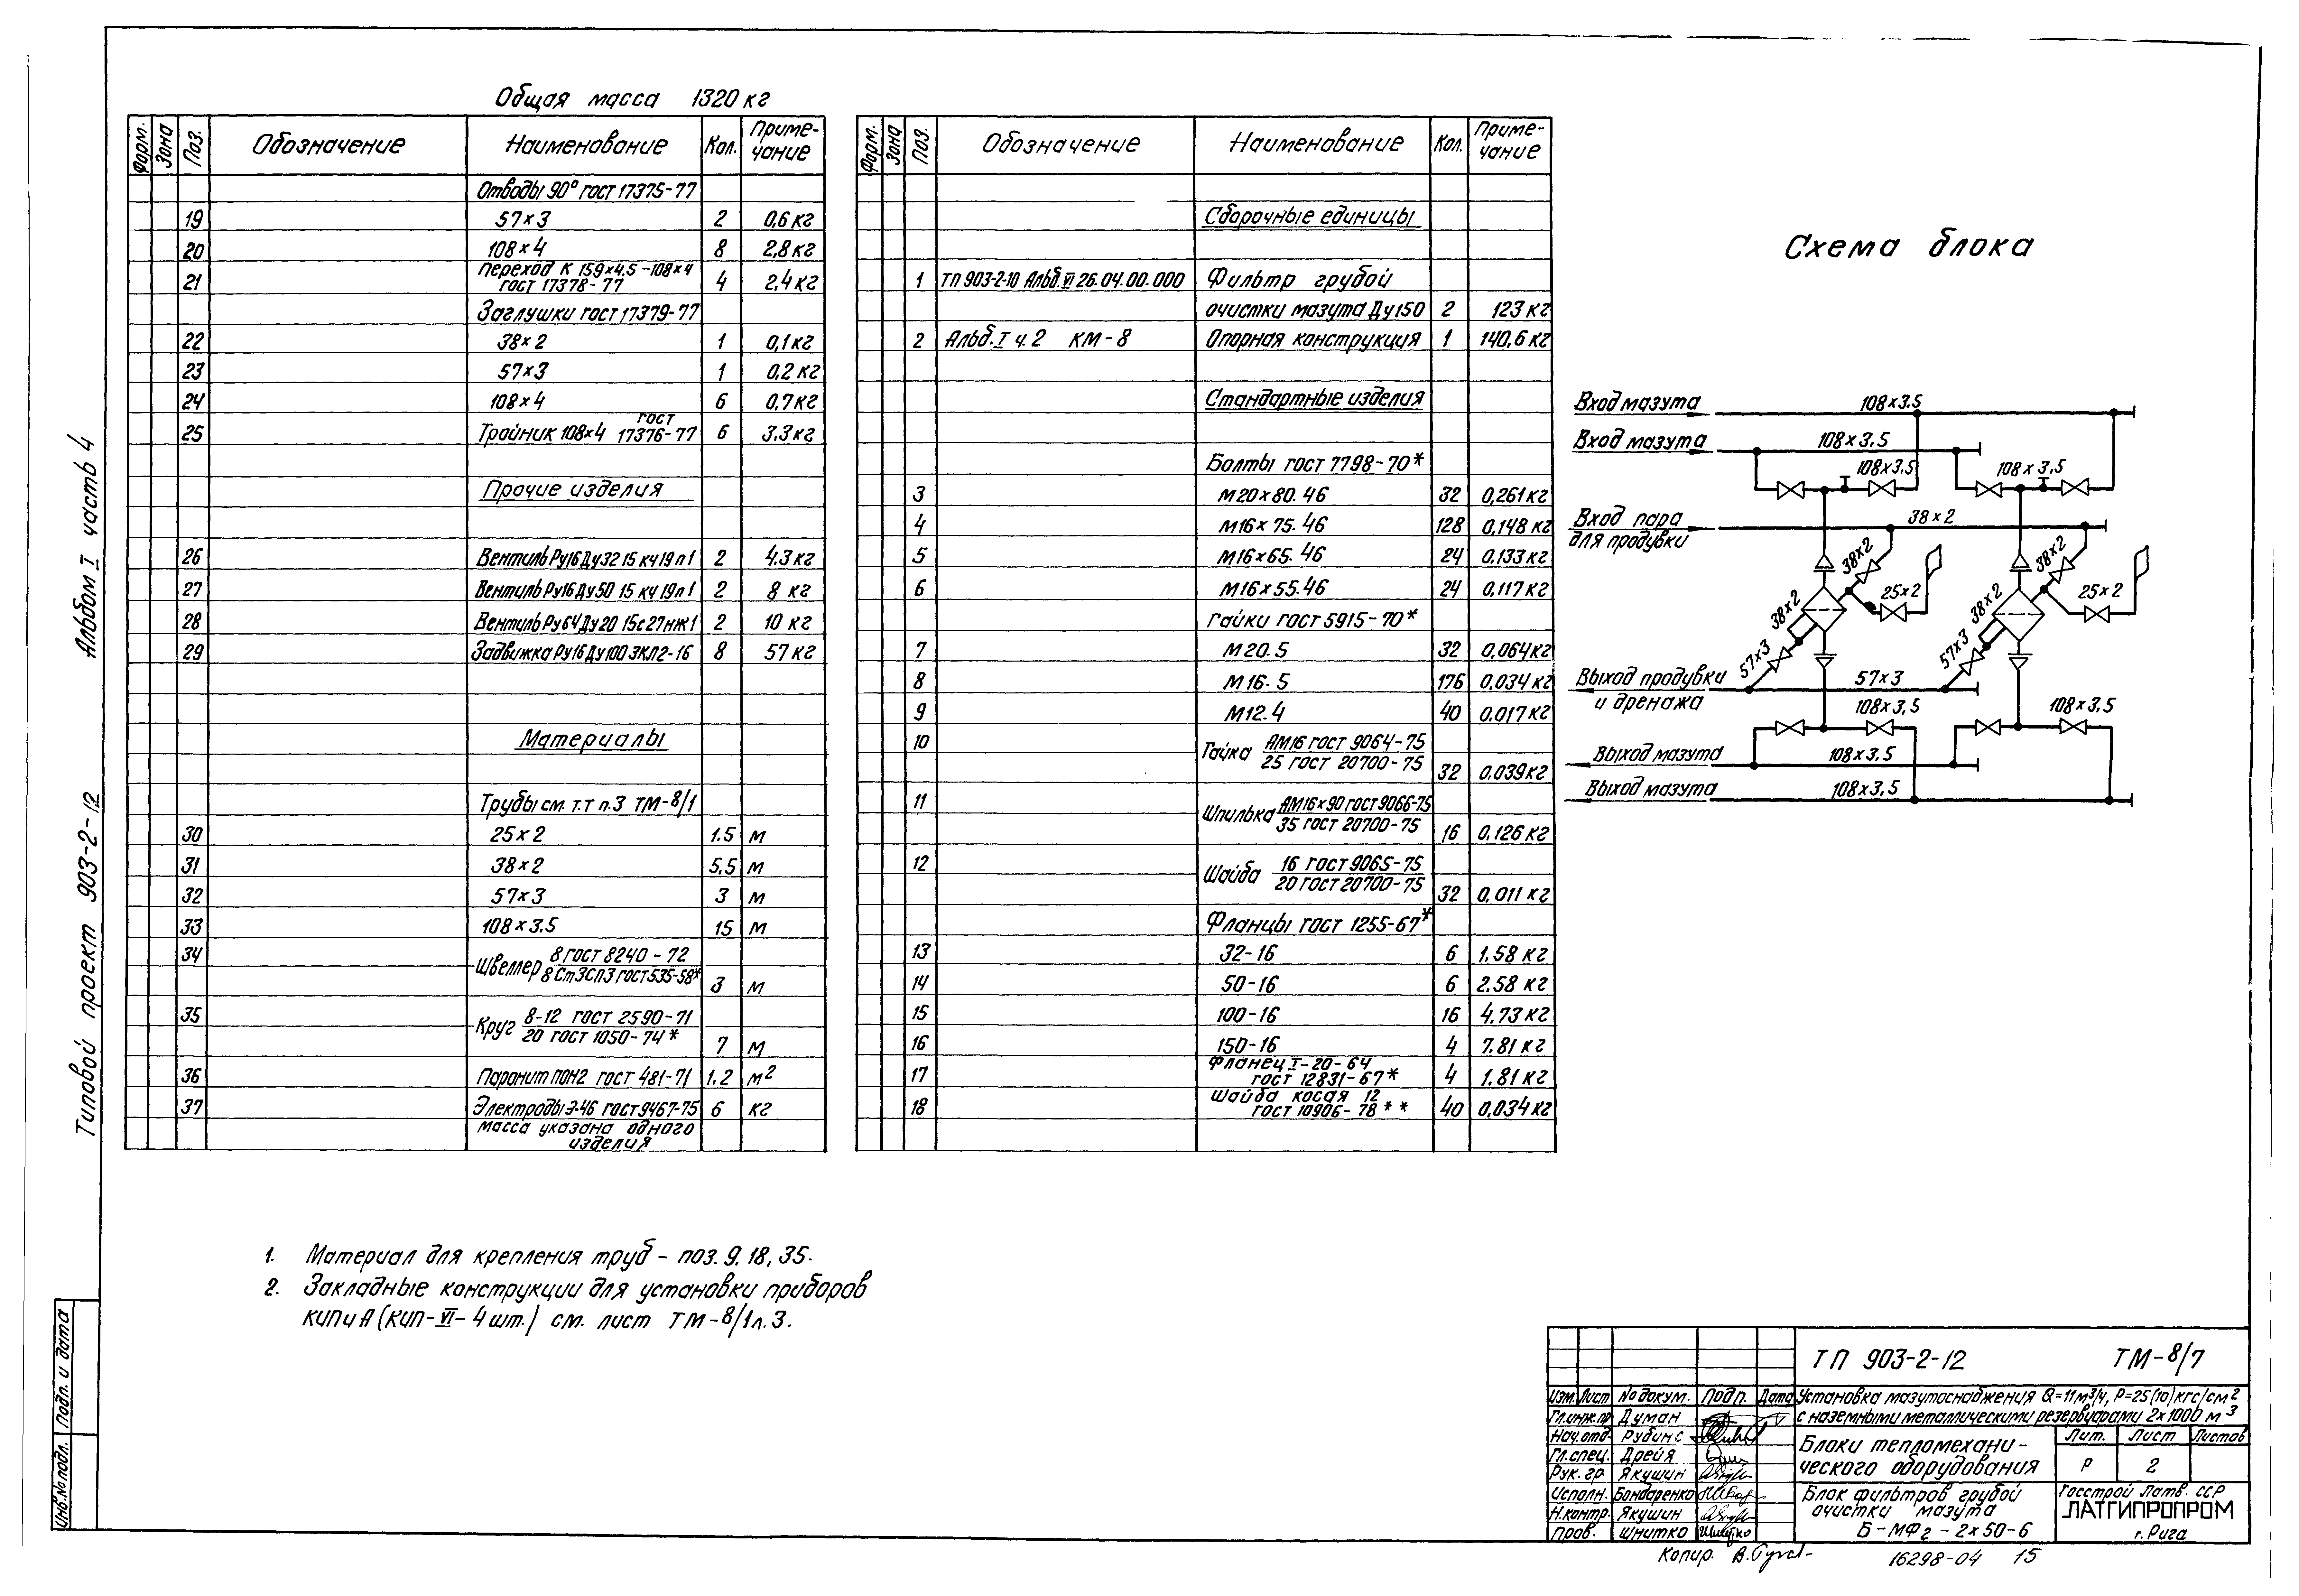 Общая масса 1320 кг
Форм. Зона Поз. Обозначение Наименование Кол. Приме-чание
Отводы 90° ГОСТ 17375-77
19 57×3 2 0,6 кг
20 108×4 8 2,8 кг
Переход К 159×4,5-108×4
21 ГОСТ 17378-77 4 2,4 кг
Заглушки ГОСТ 17379-77
22 38×2 1 0,1 кг
23 57×3 1 0,2 кг
24 108×4 6 0,7 кг
25 Тройник 108×4 ГОСТ 17376-77 6 3.3 кг
Прочие изделия
26 Вентиль Ру16 Ду32 15кч19п1 2 4.3 кг
27 Вентиль Ру16 Ду50 15кч19п1 2 8 кг
28 Вентиль Ру64 Ду20 15с27нж1 2 10 кг
29 Задвижка Ру16 Ду100 ЗКЛ2-16 8 57 кг
Материалы
Трубы см. т.т п.3 ТМ-8/1
30 25×2 1.5 м
31 38×2 5,5 м
32 57×3 3 м
33 108×3.5 15 м
34 Швеллер 8 ГОСТ 8240-72
8 Ст3СП3 ГОСТ 535-58* 3 м
35 Круг 8-12 ГОСТ 2590-71
20 ГОСТ 1050-74* 7 м
36 Паронит ПОН2 ГОСТ 481-71 1,2 м²
37 Электроды Э-46 ГОСТ 9467-75 6 кг
Масса указана одного
изделия
Форм. Зона Поз. Обозначение Наименование Кол. Приме-чание
Сборочные единицы
1 ТП 903-2-10 Альб. VI 26.04.00.000 Фильтр грубой
очистки мазута Ду150 2 123 кг
2 Альб. I ч.2 КМ-8 Опорная конструкция 1 140,6 кг
Стандартные изделия
Болты ГОСТ 7798-70*
3 М20×80.46 32 0,261 кг
4 М16×75.46 128 0,148 кг
5 М16×65.46 24 0.133 кг
6 М16×55.46 24 0,117 кг
Гайки ГОСТ 5915-70*
7 М20.5 32 0,064 кг
8 М16.5 176 0,034 кг
9 М12.4 40 0.017 кг
10 Гайка АМ16 ГОСТ 9064-75
25 ГОСТ 20700-75 32 0.039 кг
11 Шпилька АМ16×90 ГОСТ 9066-75
35 ГОСТ 20700-75 16 0,126 кг
12 Шайба 16 ГОСТ 9065-75
20 ГОСТ 20700-75 32 0,011 кг
Фланцы ГОСТ 1255-67*
13 32-16 6 1.58 кг
14 50-16 6 2.58 кг
15 100-16 16 4.73 кг
16 150-16 4 7.81 кг
Фланец I-20-64
17 ГОСТ 12831-67* 4 1.81 кг
Шайба косая 12
18 ГОСТ 10906-78** 40 0,034 кг
Схема блока
Вход мазута 108×3.5
Вход мазута 108×3,5
108×3,5 108×3,5
Вход пара 38×2
для продувки
38×2 38×2
25×2 25×2
38×2 38×2
57×3 57×3
Выход продувки 57×3
и дренажа 108×3.5 108×3.5
Выход мазута 108×3,5
Выход мазута 108×3,5
1. Материал для крепления труб - поз. 9, 18, 35.
2. Закладные конструкции для установки приборов
КИПиА (КИП-VI-4 шт.) см. лист ТМ-8/1 л.3.
Типовой проект 903-2-12 Альбом I часть 4
Инв.№ подл. Подп. и дата
ТП 903-2-12 ТМ-8/7
Изм. Лист № докум. Подп. Дата
Установка мазутоснабжения Q=11м³/ч, Р=25(10)кгс/см²
с наземными металлическими резервуарами 2×1000 м³
Гл.инж.пр Думан
Нач.отд. Рубинс
Гл.спец. Дрейя
Рук.гр. Якушин
Исполн. Бондаренко
Н.контр. Якушин
Пров. Шнитко
Блоки тепломехани-
ческого оборудования
Лит. Лист Листов
Р 2
Блок фильтров грубой
очистки мазута
Б-МФ2-2×50-6
Госстрой Латв. ССР
ЛАТГИПРОПРОМ
г. Рига
Копир.
16298-04 15